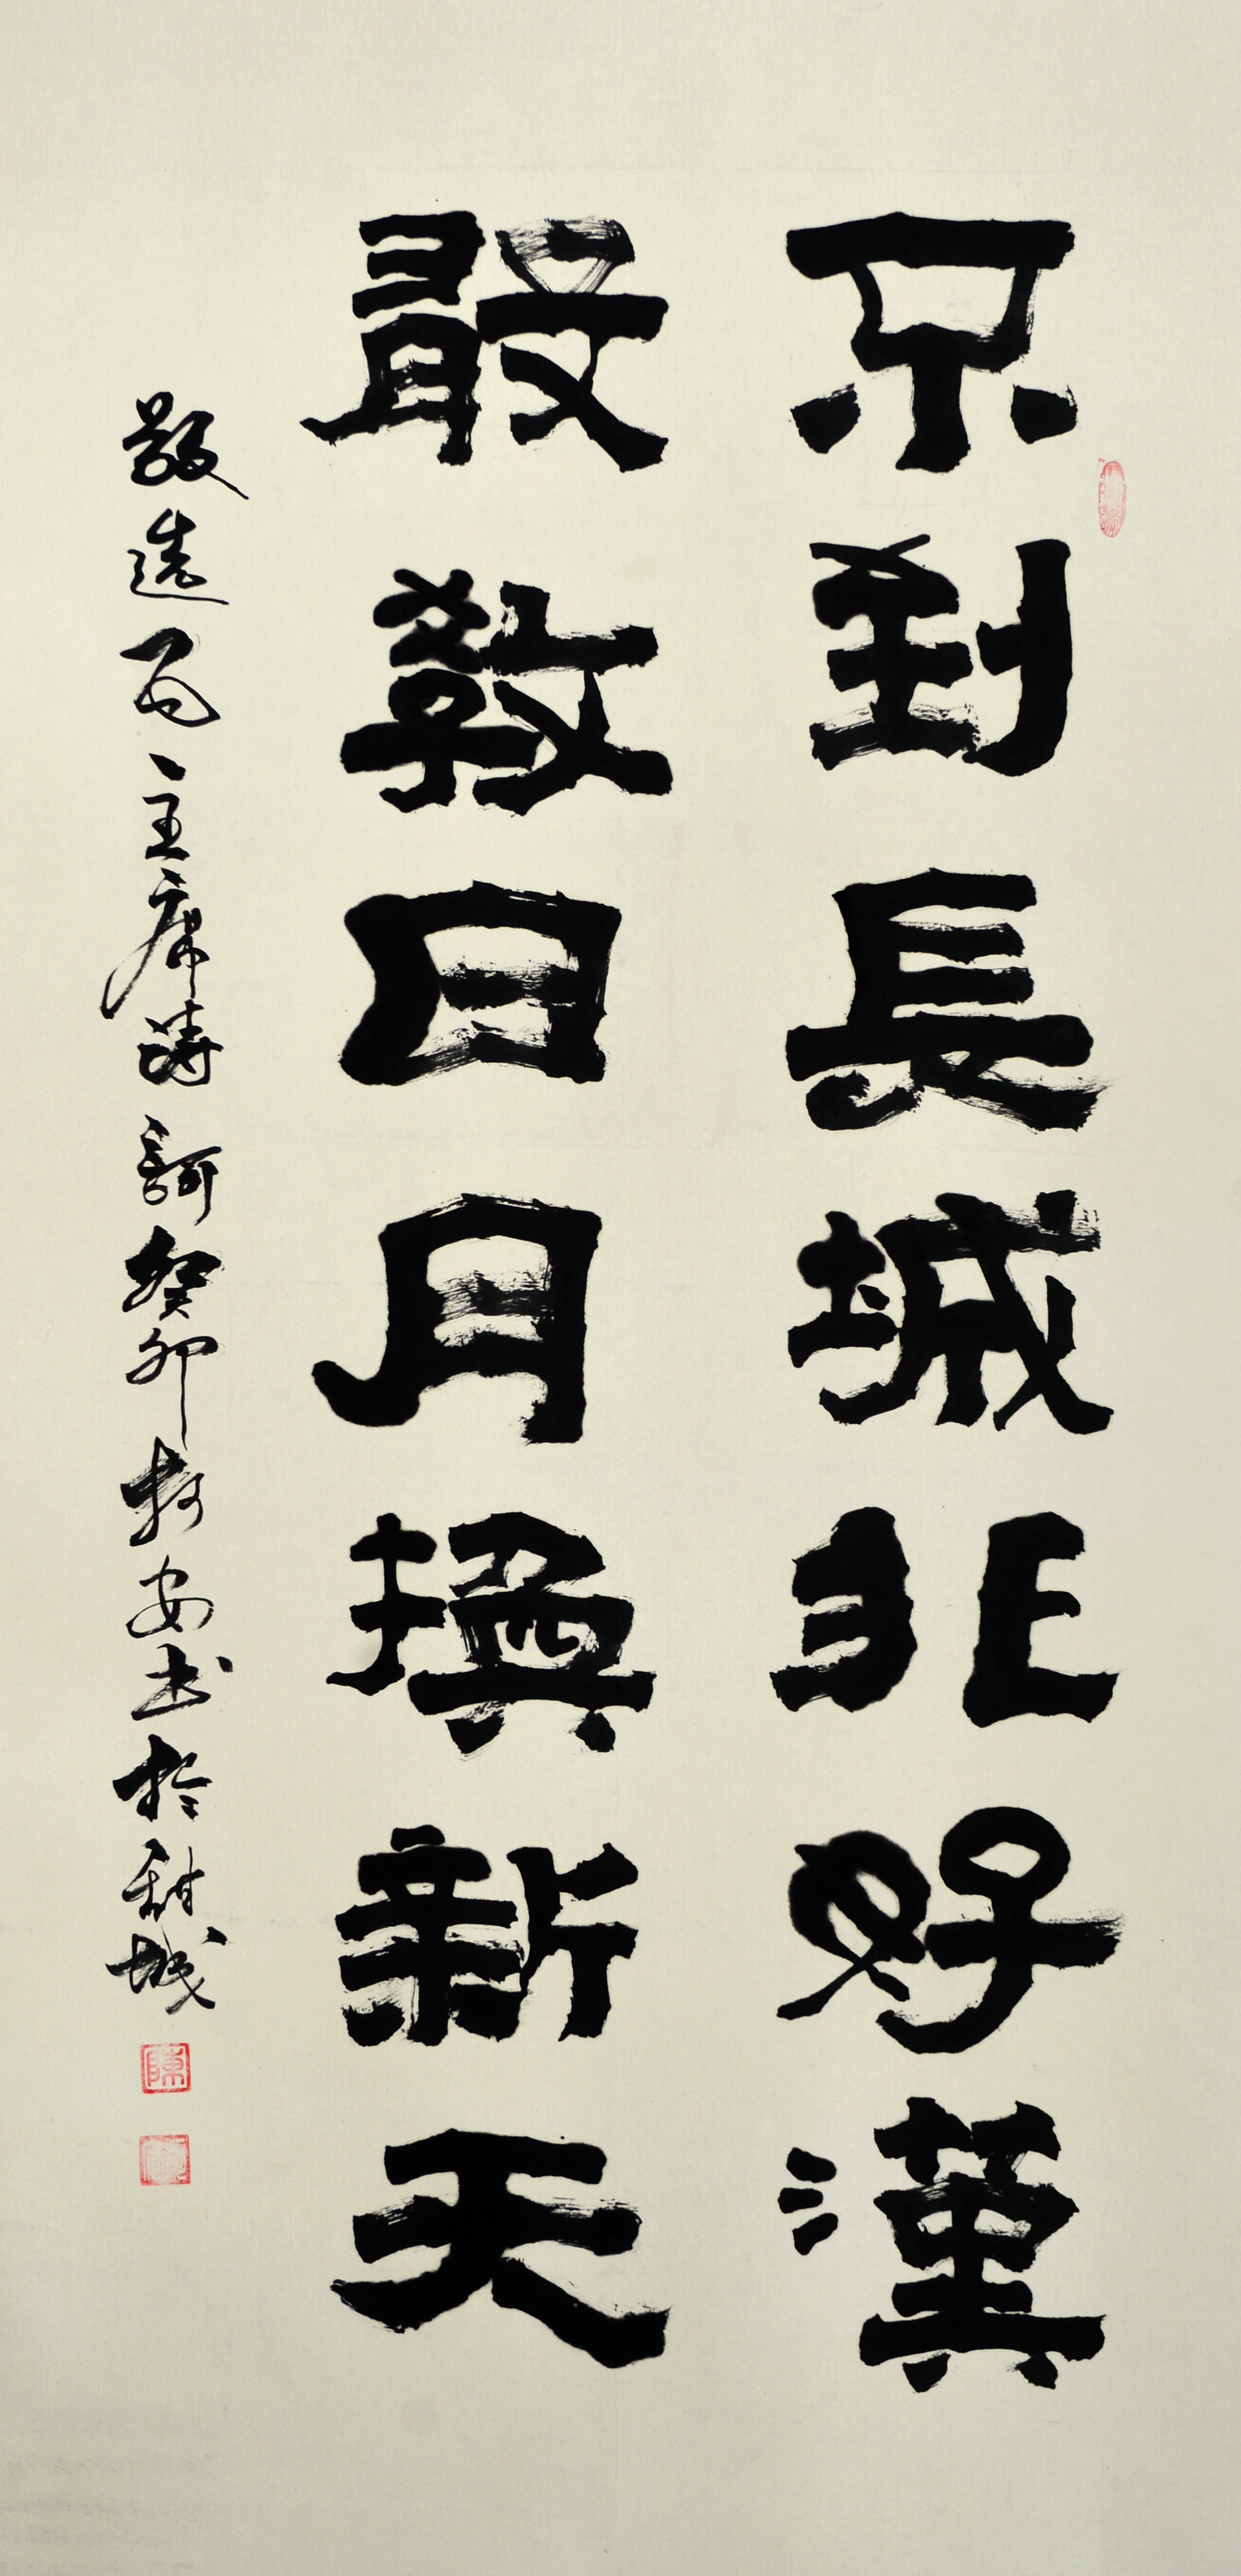 不到長城非好漢
敢教日月換新天
敬选毛主席詩詞癸卯抒安书於甜城
陳